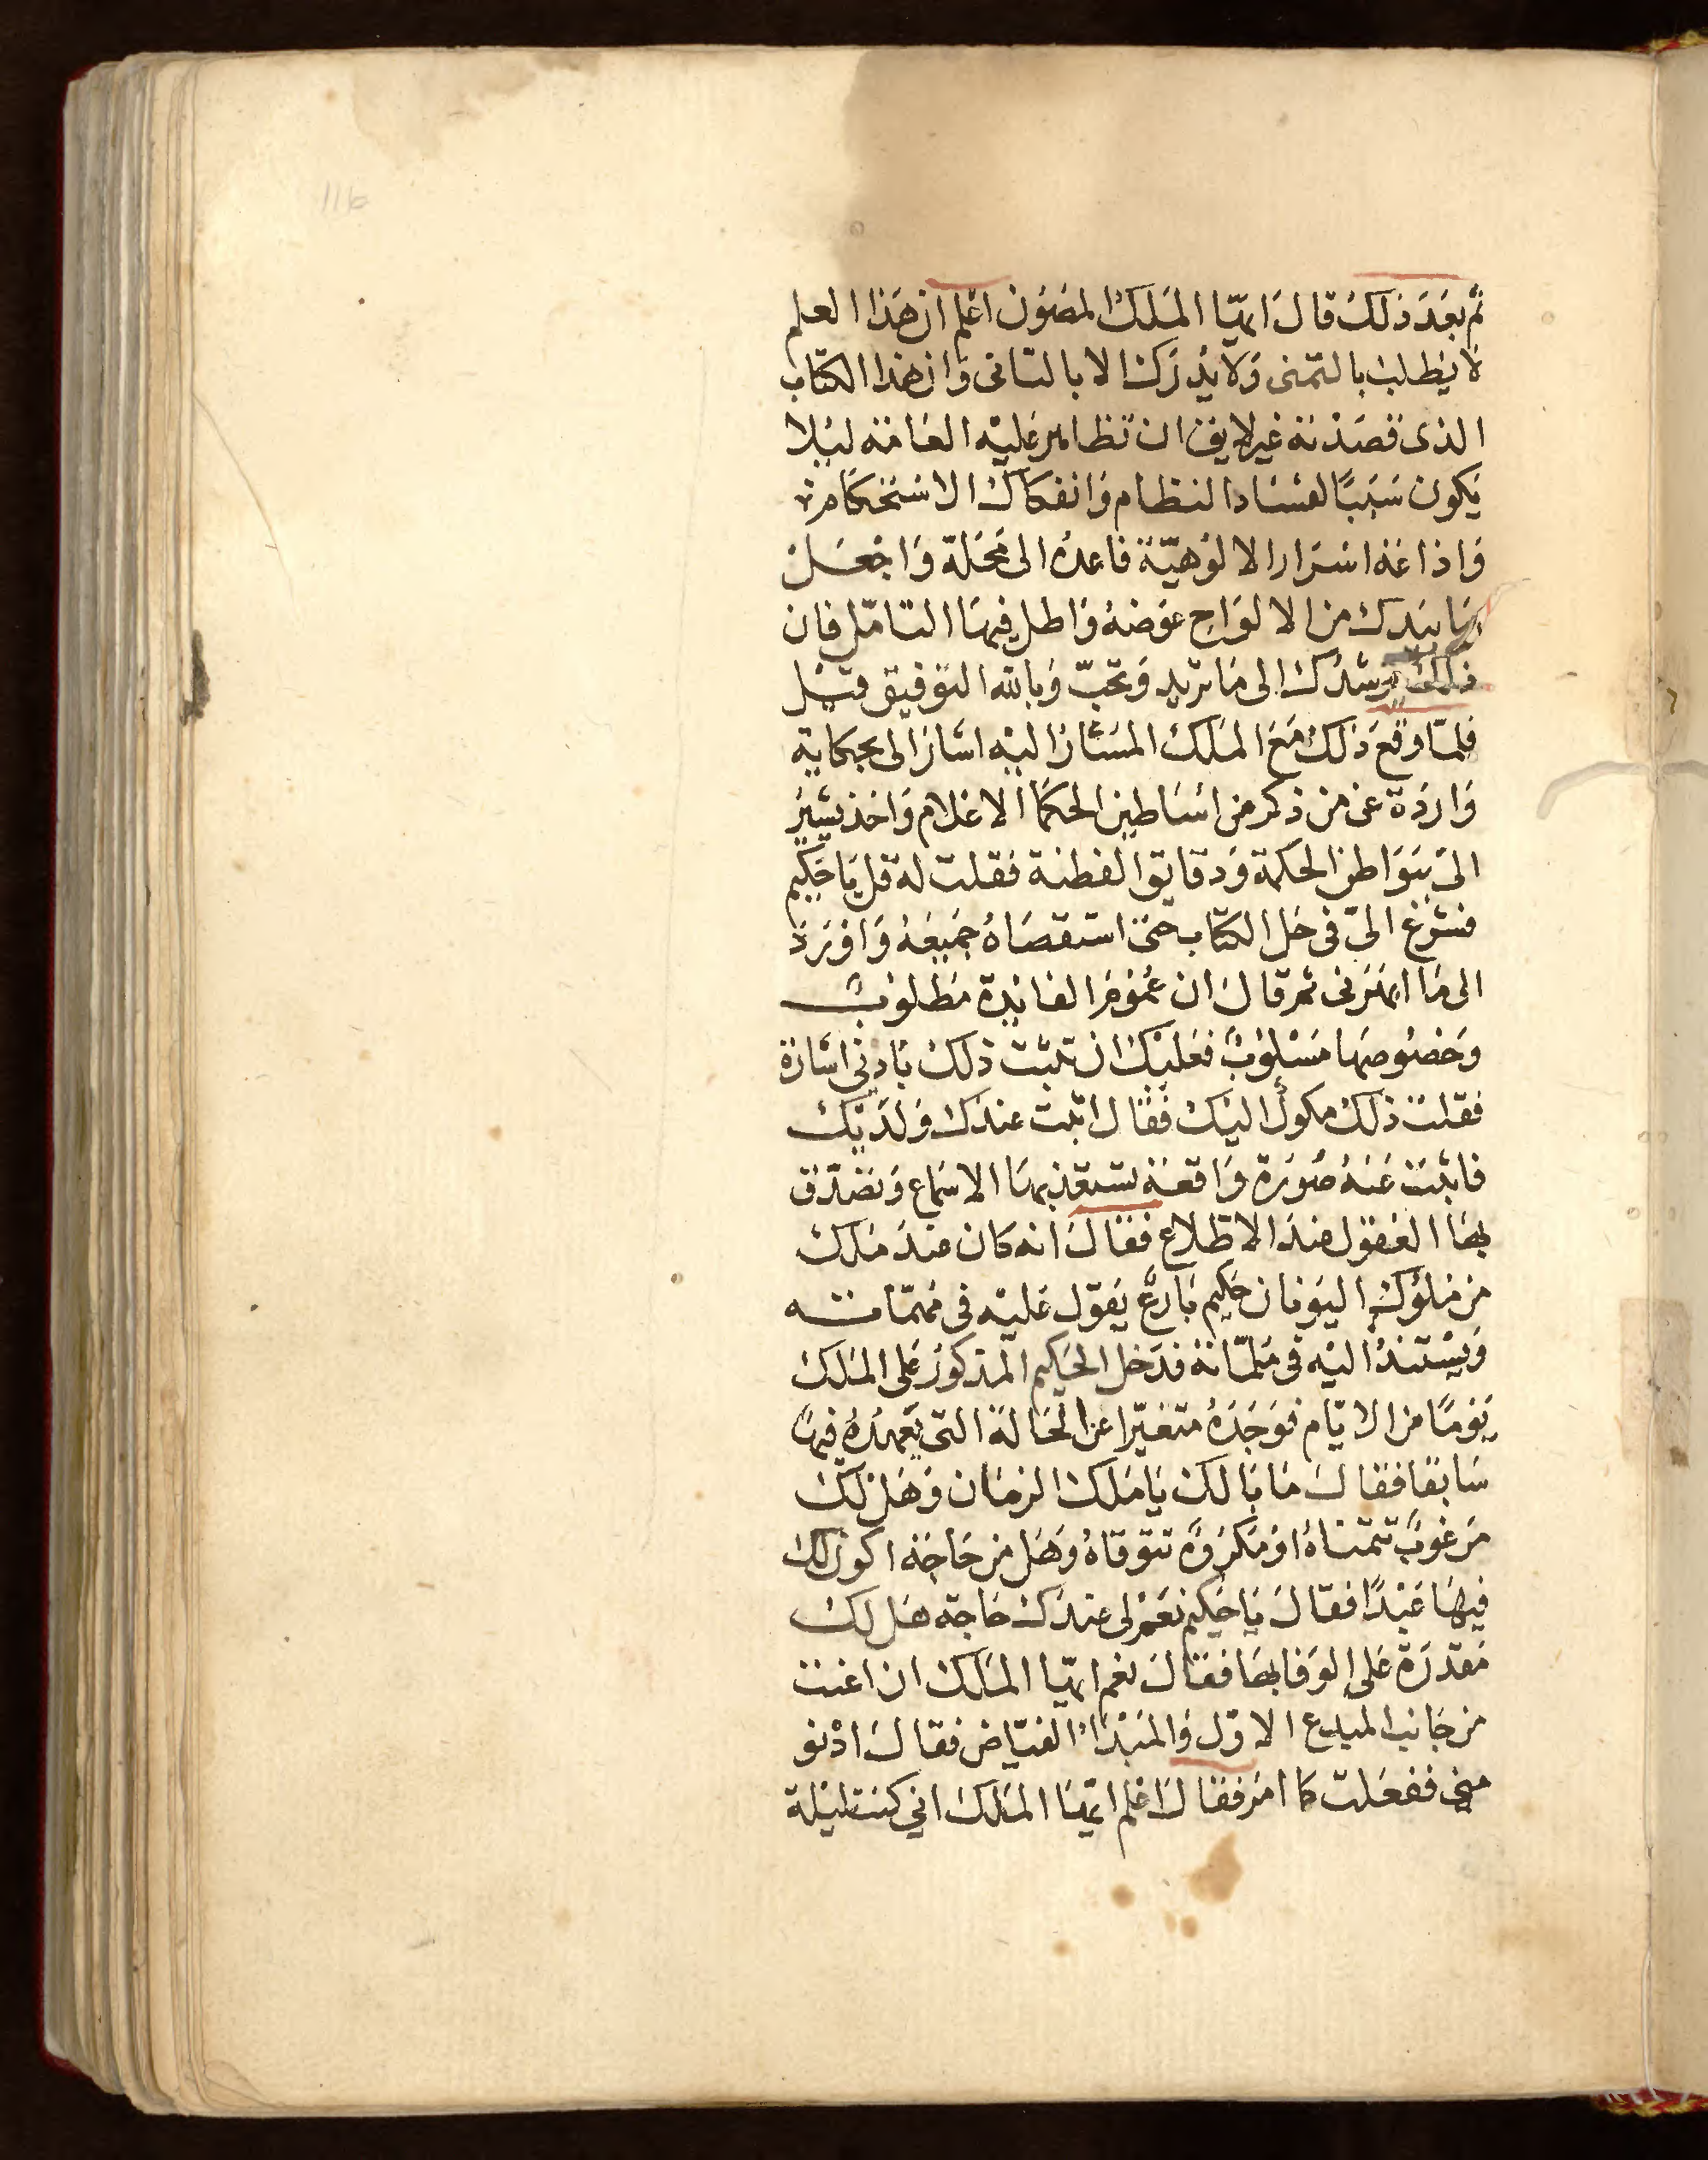 11b
ثم بعد ذلك قال ايها الملك المصون اعلم ان هذا العلم
لا يطلب بالتمنى ولا يدرك الا بالتانى وان هذا الكتاب
الذى قصدته غير لايق ان تظاهر عليه العامة ليلا
يكون سببًا لفساد النظام وانفكاك الاستحكام
واذاعة اسرار الالوهية فاعده الى محله واجعل
ما بيدك من الالواح عوضه واطل فيها التامل فان
ذلك يرشدك الى ما تريد وتحب وبالله التوفيق قيل
فلما وقع ذلك مع الملك المشار اليه اشار الى بحكاية
واردة عن من ذكر من اساطين الحكما الاعلام واخذ يشير
الى بواطن الحكمة ودقايق الفطنة فقلت له قل يا حكيم
فشرع الىّ فى حل الكتاب حتى استقصاه جميعه وافرد
الى ما ابهرنى ثم قال ان عموم الفائدة مطلوب
وخصوصها مسلوب فعليك ان تثبت ذلك بادنى اشارة
فقلت ذلك موكول اليك فقال اثبت عندك ولديك
فاثبت عنه صورة واقعة تستعذبها الاسماع وتصدق
بها العقول عند الاطلاع فقال انه كان عند ملك
من ملوك اليونان حكيم بارع يعول عليه فى مهماته
ويستند اليه فى ملماته فدخل الحكيم المذكور على الملك
يومًا من الايام فوجده متغيرا عن الحالة التى يعهده فيها
سابقا فقال ما بالك يا ملك الزمان وهل لك
مرغوب تتمناه او مكروه تتوقاه وهل من حاجة اكون لك
فيها عبدًا فقال يا حكيم نعم لى عندك حاجة هل لك
مقدرة على الوفا بها فقال نعم ايها الملك ان اعنت
من جانب المبدع الاول والمبدا الفياض فقال ادنو
منى ففعلت كما امر فقال اعلم ايها الملك انى كنت ليلة